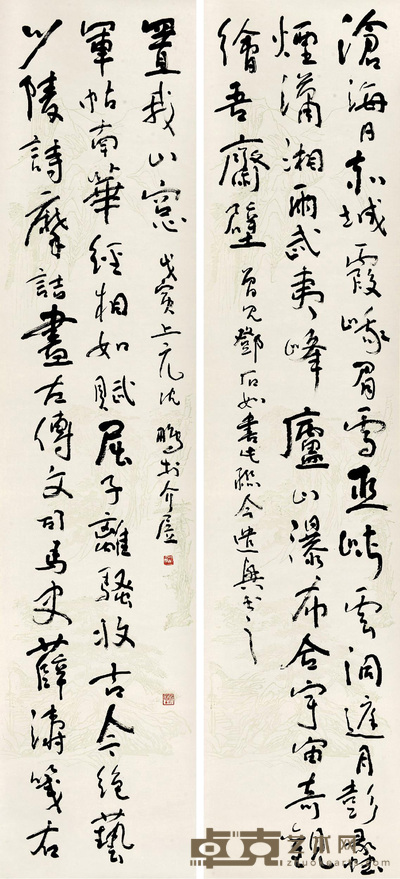 滄海日赤城霞峨眉雪巫峽雲洞庭月彭蠡
煙瀟湘雨武夷峰廬山瀑布合宇宙奇觀
繪吾齋壁 曾見鄧石如書此聯今遣興書之
少陵詩摩詰畫左傳文司馬史薛濤箋右
軍帖南華經相如賦屈子離騷收古今絕藝
置我山窓 戊寅上元沈鵬书介居
卓克艺术网